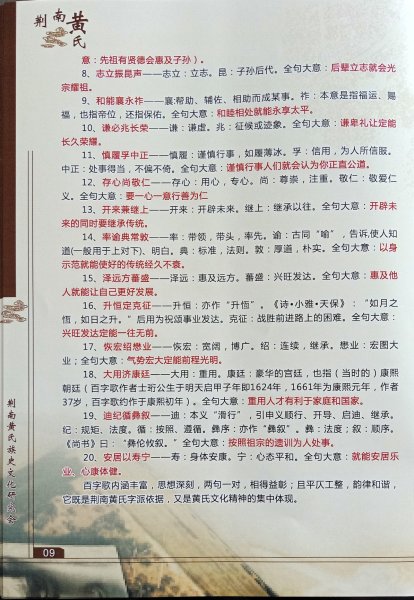 荆南黄氏
意：先祖有贤德会惠及子孙）。
8、志立振昆声——志立：立志。昆：子孙后代。全句大意：后辈立志就会光
宗耀祖。
9、和能襄永祚——襄:帮助、辅佐、相助而成某事。祚：本意是指福运、赐
福，也指帝位，还指保佑。全句大意：和睦相处就能永享太平。
10、谦必兆长荣——谦：谦虚。兆：征候或迹象。全句大意：谦卑礼让定能
长久荣耀。
11、慎履孚中正——慎履：谨慎行事，如履薄冰。孚：信用，为人所信服。
中正：处事得当，不偏不倚。全句大意：谨慎行事人们就会认为你正直公道。
12、存心尚敬仁——存心：用心，专心。尚：尊崇，注重。敬仁：敬爱仁
义。全句大意：要一心一意行善为仁
13、开来兼继上——开来：开辟未来。继上：继承以往。全句大意：开辟未
来的同时要继承传统。
14、率谕典常敦——率：带领，带头，率先。谕：古同“喻”，告诉,使人知
道(一般用于上对下)、明白。典：标准，法则。敦：厚道，朴实。全句大意：以身
示范就能使好的传统经久不衰。
15、泽远方蕃盛——泽远：惠及远方。蕃盛：兴旺发达。全句大意：惠及他
人就能让自己更好发展。
16、升恒定克征——升恒：亦作“升恆”。《诗•小雅•天保》：“如月之
恆，如日之升。”后用为祝颂事业发达。克征：战胜前进路上的困难。全句大意：
兴旺发达定能一往无前。
17、恢宏绍懋业——恢宏：宽阔，博广。绍：连续，继承。懋业：宏图大
业；全句大意：气势宏大定能前程光明。
18、大用济康廷——大用：重用。康廷：豪华的宫廷，也指（当时的）康熙
朝廷（百字歌作者士珩公生于明天启甲子年即1624年，1661年为康熙元年，作者
37岁，百字歌约作于康熙初年）。全句大意：重用人才有利于家庭和国家。
19、迪纪循彝叙——迪：本义“滑行”，引申义顺行、开导、启迪、继承。
纪：规矩、法度。循：按照、遵循。彝序：亦作“彝叙”。彝：法度；叙：顺序。
《尚书》曰：“彝伦攸叙。”全句大意：按照祖宗的遗训为人处事。
20、安居以寿宁——寿：身体安康。宁：心态平和。全句大意：就能安居乐
业、心康体健。
百字歌内涵丰富，思想深刻，两句一对，相得益彰；且平仄工整，韵律和谐，
它既是荆南黄氏字派依据，又是黄氏文化精神的集中体现。
荆南黄氏族史文化研究会
09